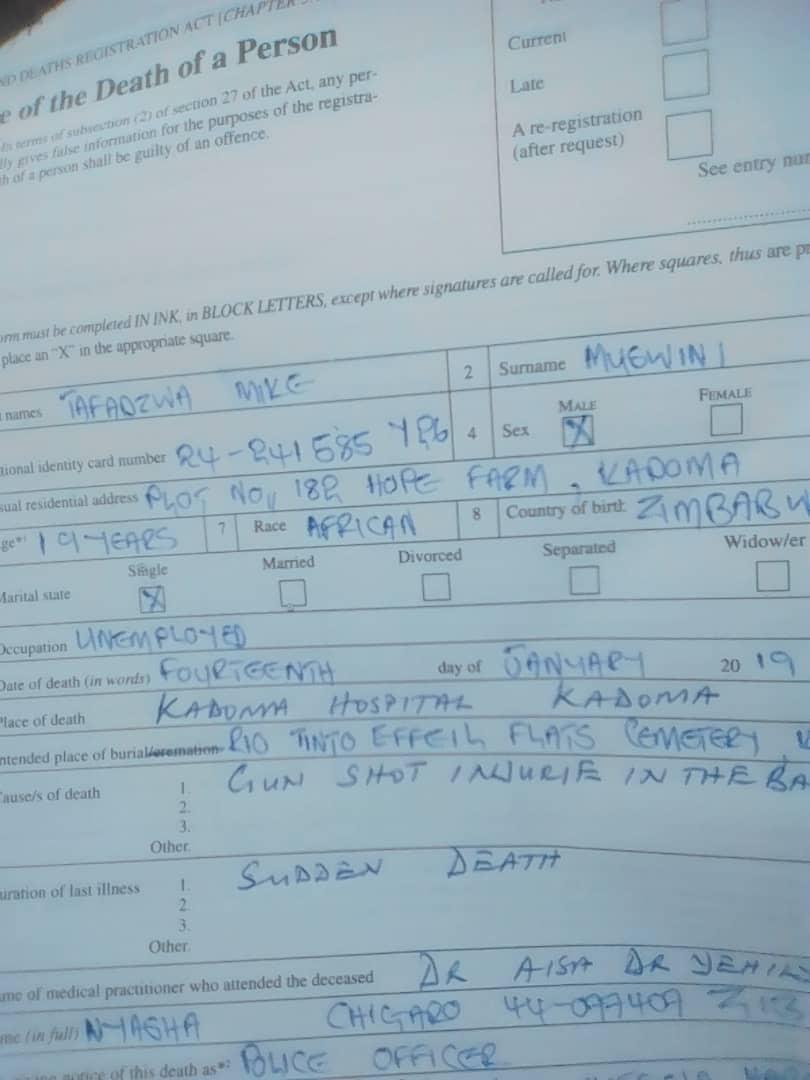 ND DEATHS REGISTRATION ACT [CHAPTER
e of the Death of a Person
In terms of subsection (2) of section 27 of the Act, any per-
lly gives false information for the purposes of the registra-
th of a person shall be guilty of an offence.
Current
Late
A re-registration
(after request)
See entry num
orm must be completed IN INK, in BLOCK LETTERS, except where signatures are called for. Where squares, thus are pr
place an "X" in the appropriate square.
names TAFADZWA MIKE 2 Surname MUGWINI
tional identity card number 24-241585 Y26 4 Sex MALE X FEMALE
sual residential address PLOT NO, 182 HOPE FARM, KADOMA
ge* 19 YEARS 7 Race AFRICAN 8 Country of birth ZIMBABW
Marital state Single X Married Divorced Separated Widow/er
Occupation UNEMPLOYED
Date of death (in words) FOURTEENTH day of JANUARY 20 19
Place of death KADOMA HOSPITAL KADOMA
ntended place of burial/cremation RIO TINTO EFFEIL FLATS CEMETERY
Cause/s of death 1. GUN SHOT INJURIE IN THE BA
2.
3.
Other.
uration of last illness 1. SUDDEN DEATH
2.
3.
Other.
ame of medical practitioner who attended the deceased DR AISA DR
me (in full) NYASHA CHIGARO 44-097409
notice of this death as*² POLICE OFFICER